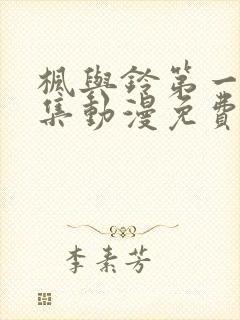 楓與鈴第一
集動漫免費
李素芳